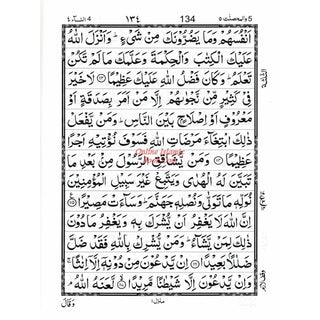 النسآء ٤ 4 ١٣٤ 134 والمحصنت ٥ 5
اَنْفُسَهُمْ وَمَا يَضُرُّوْنَكَ مِنْ شَيْءٍ ؕ وَاَنْزَلَ اللّٰهُ
عَلَيْكَ الْكِتٰبَ وَالْحِكْمَةَ وَعَلَّمَكَ مَا لَمْ تَكُنْ
تَعْلَمُ ؕ وَكَانَ فَضْلُ اللّٰهِ عَلَيْكَ عَظِيْمًا لَا خَيْرَ
فِيْ كَثِيْرٍ مِّنْ نَّجْوٰىهُمْ اِلَّا مَنْ اَمَرَ بِصَدَقَةٍ اَوْ
مَعْرُوْفٍ اَوْ اِصْلَاحٍۭ بَيْنَ النَّاسِ ؕ وَمَنْ يَّفْعَلْ
ذٰلِكَ ابْتِغَآءَ مَرْضَاتِ اللّٰهِ فَسَوْفَ نُؤْتِيْهِ اَجْرًا
عَظِيْمًا وَمَنْ يُّشَاقِقِ الرَّسُوْلَ مِنْۢ بَعْدِ مَا
تَبَيَّنَ لَهُ الْهُدٰى وَيَتَّبِعْ غَيْرَ سَبِيْلِ الْمُؤْمِنِيْنَ
نُوَلِّهٖ مَا تَوَلّٰى وَنُصْلِهٖ جَهَنَّمَ ؕ وَسَآءَتْ مَصِيْرًا
اِنَّ اللّٰهَ لَا يَغْفِرُ اَنْ يُّشْرَكَ بِهٖ وَيَغْفِرُ مَا دُوْنَ
ذٰلِكَ لِمَنْ يَّشَآءُ ؕ وَمَنْ يُّشْرِكْ بِاللّٰهِ فَقَدْ ضَلَّ
ضَلٰلًۢا بَعِيْدًا اِنْ يَّدْعُوْنَ مِنْ دُوْنِهٖٓ اِلَّآ اِنٰثًا ۚ
وَاِنْ يَّدْعُوْنَ اِلَّا شَيْطٰنًا مَّرِيْدًا لَّعَنَهُ اللّٰهُ ۘ
وَقَالَ